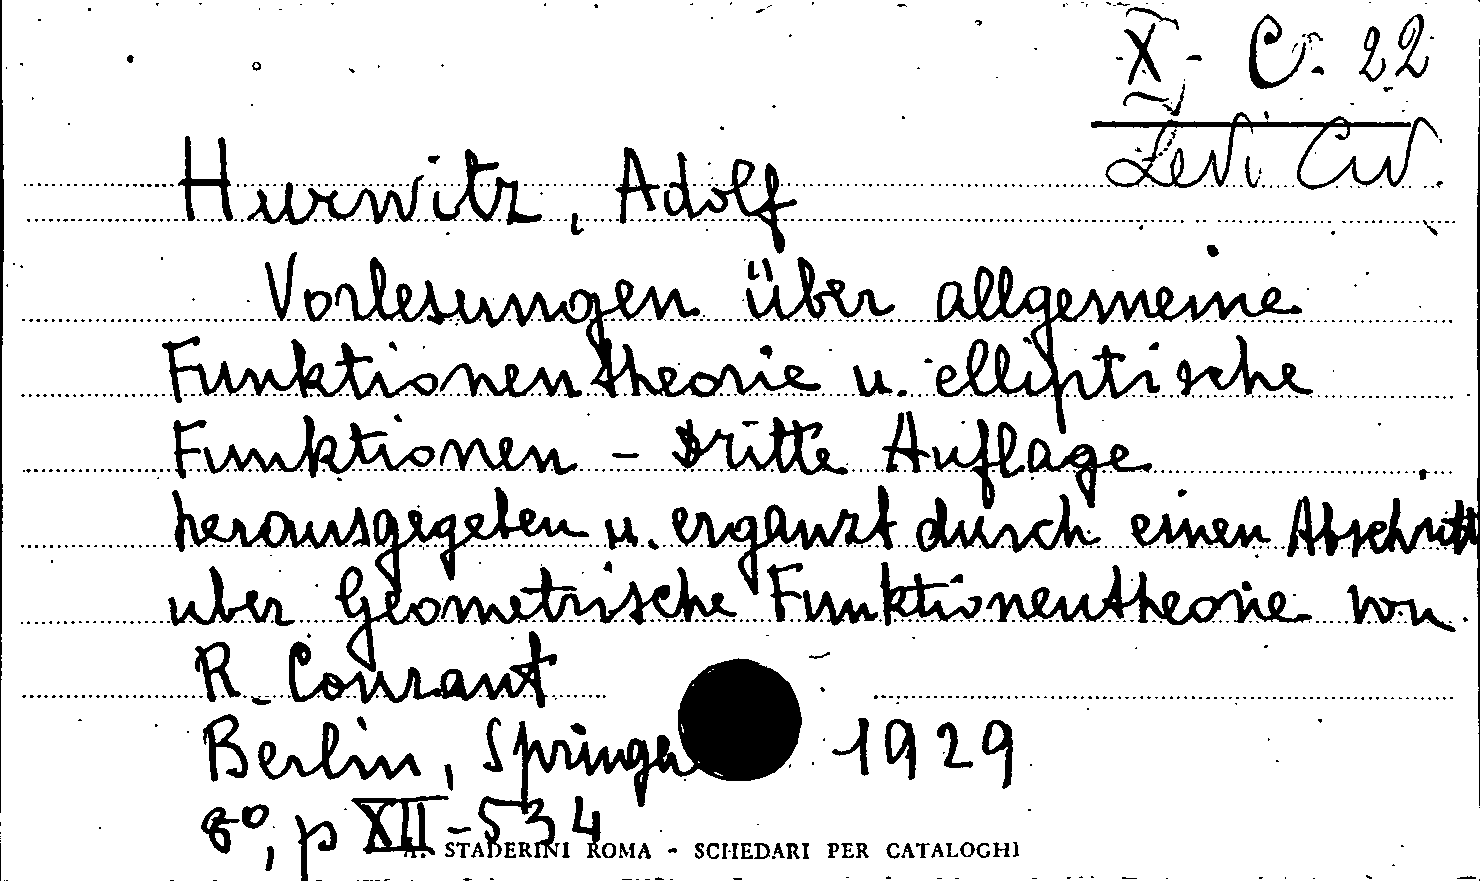 X - C. 22
Levi Civ.
Hurwitz, Adolf
Vorlesungen über allgemeine
Funktionentheorie u. elliptische
Funktionen - Dritte Auflage
herausgegeben u. erganzt durch einen Abschnitt
uber Geometrische Funktionentheorie von
R. Courant
Berlin, Springer 1929
8°, p XII-534
A. STADERINI ROMA - SCHEDARI PER CATALOGHI